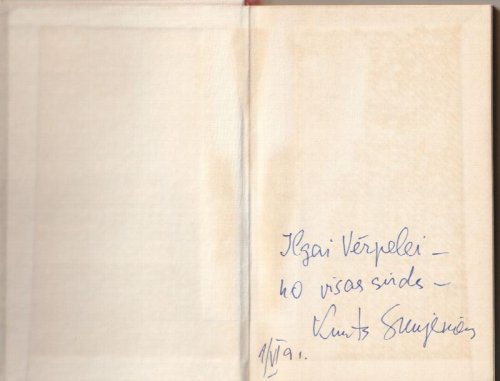 Ilgai Vērpelei –
no visas sirds –
Knuts Skujenieks
1/VI 91.